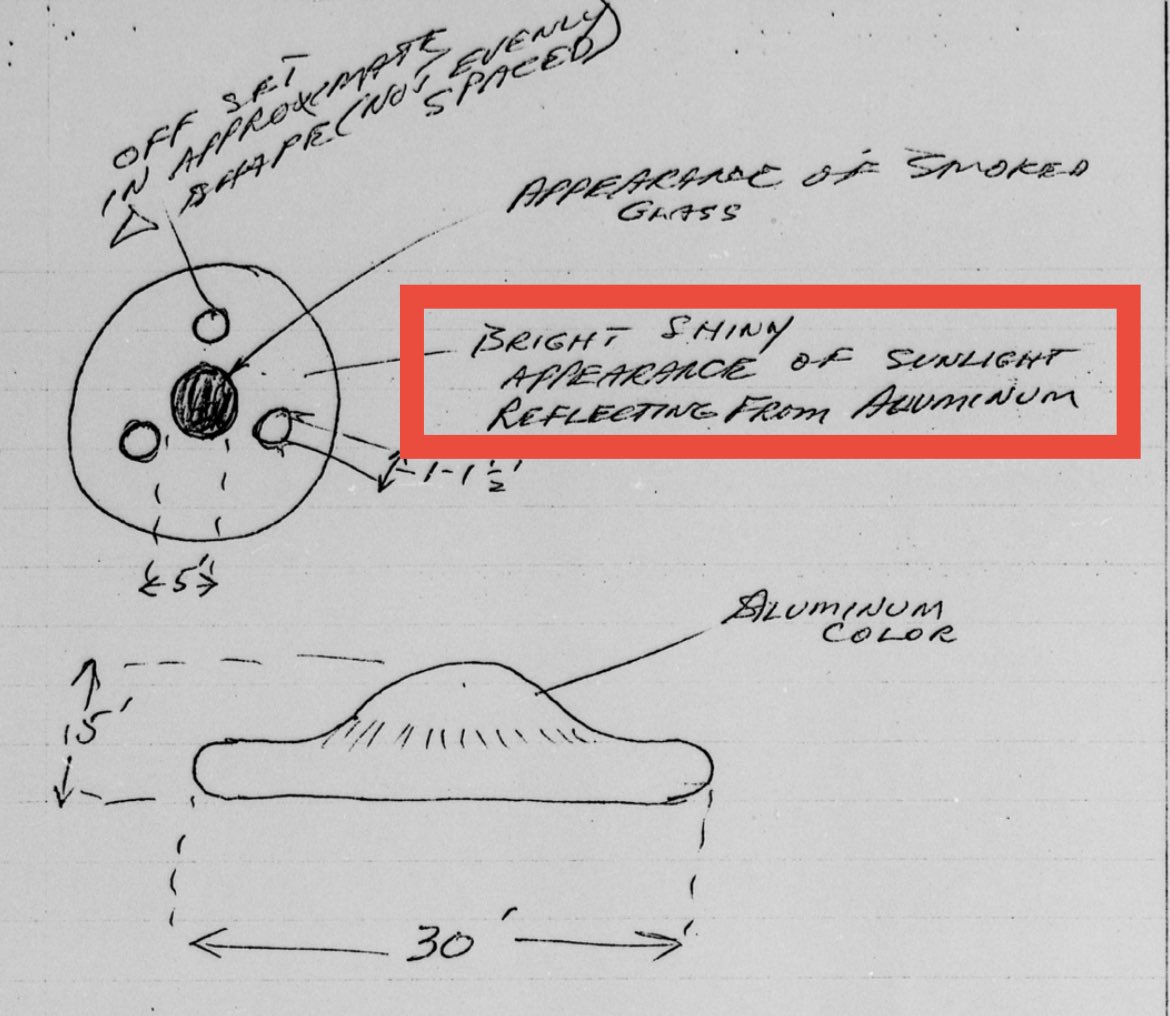 OFF SET
IN APPROXIMATE
△ SHAPE (NOT EVENLY
SPACED)
APPEARANCE OF SMOKED
GLASS
BRIGHT SHINY
APPEARANCE OF SUNLIGHT
REFLECTING FROM ALUMINUM
1-1 1/2'
5'
ALUMINUM
COLOR
15'
30'